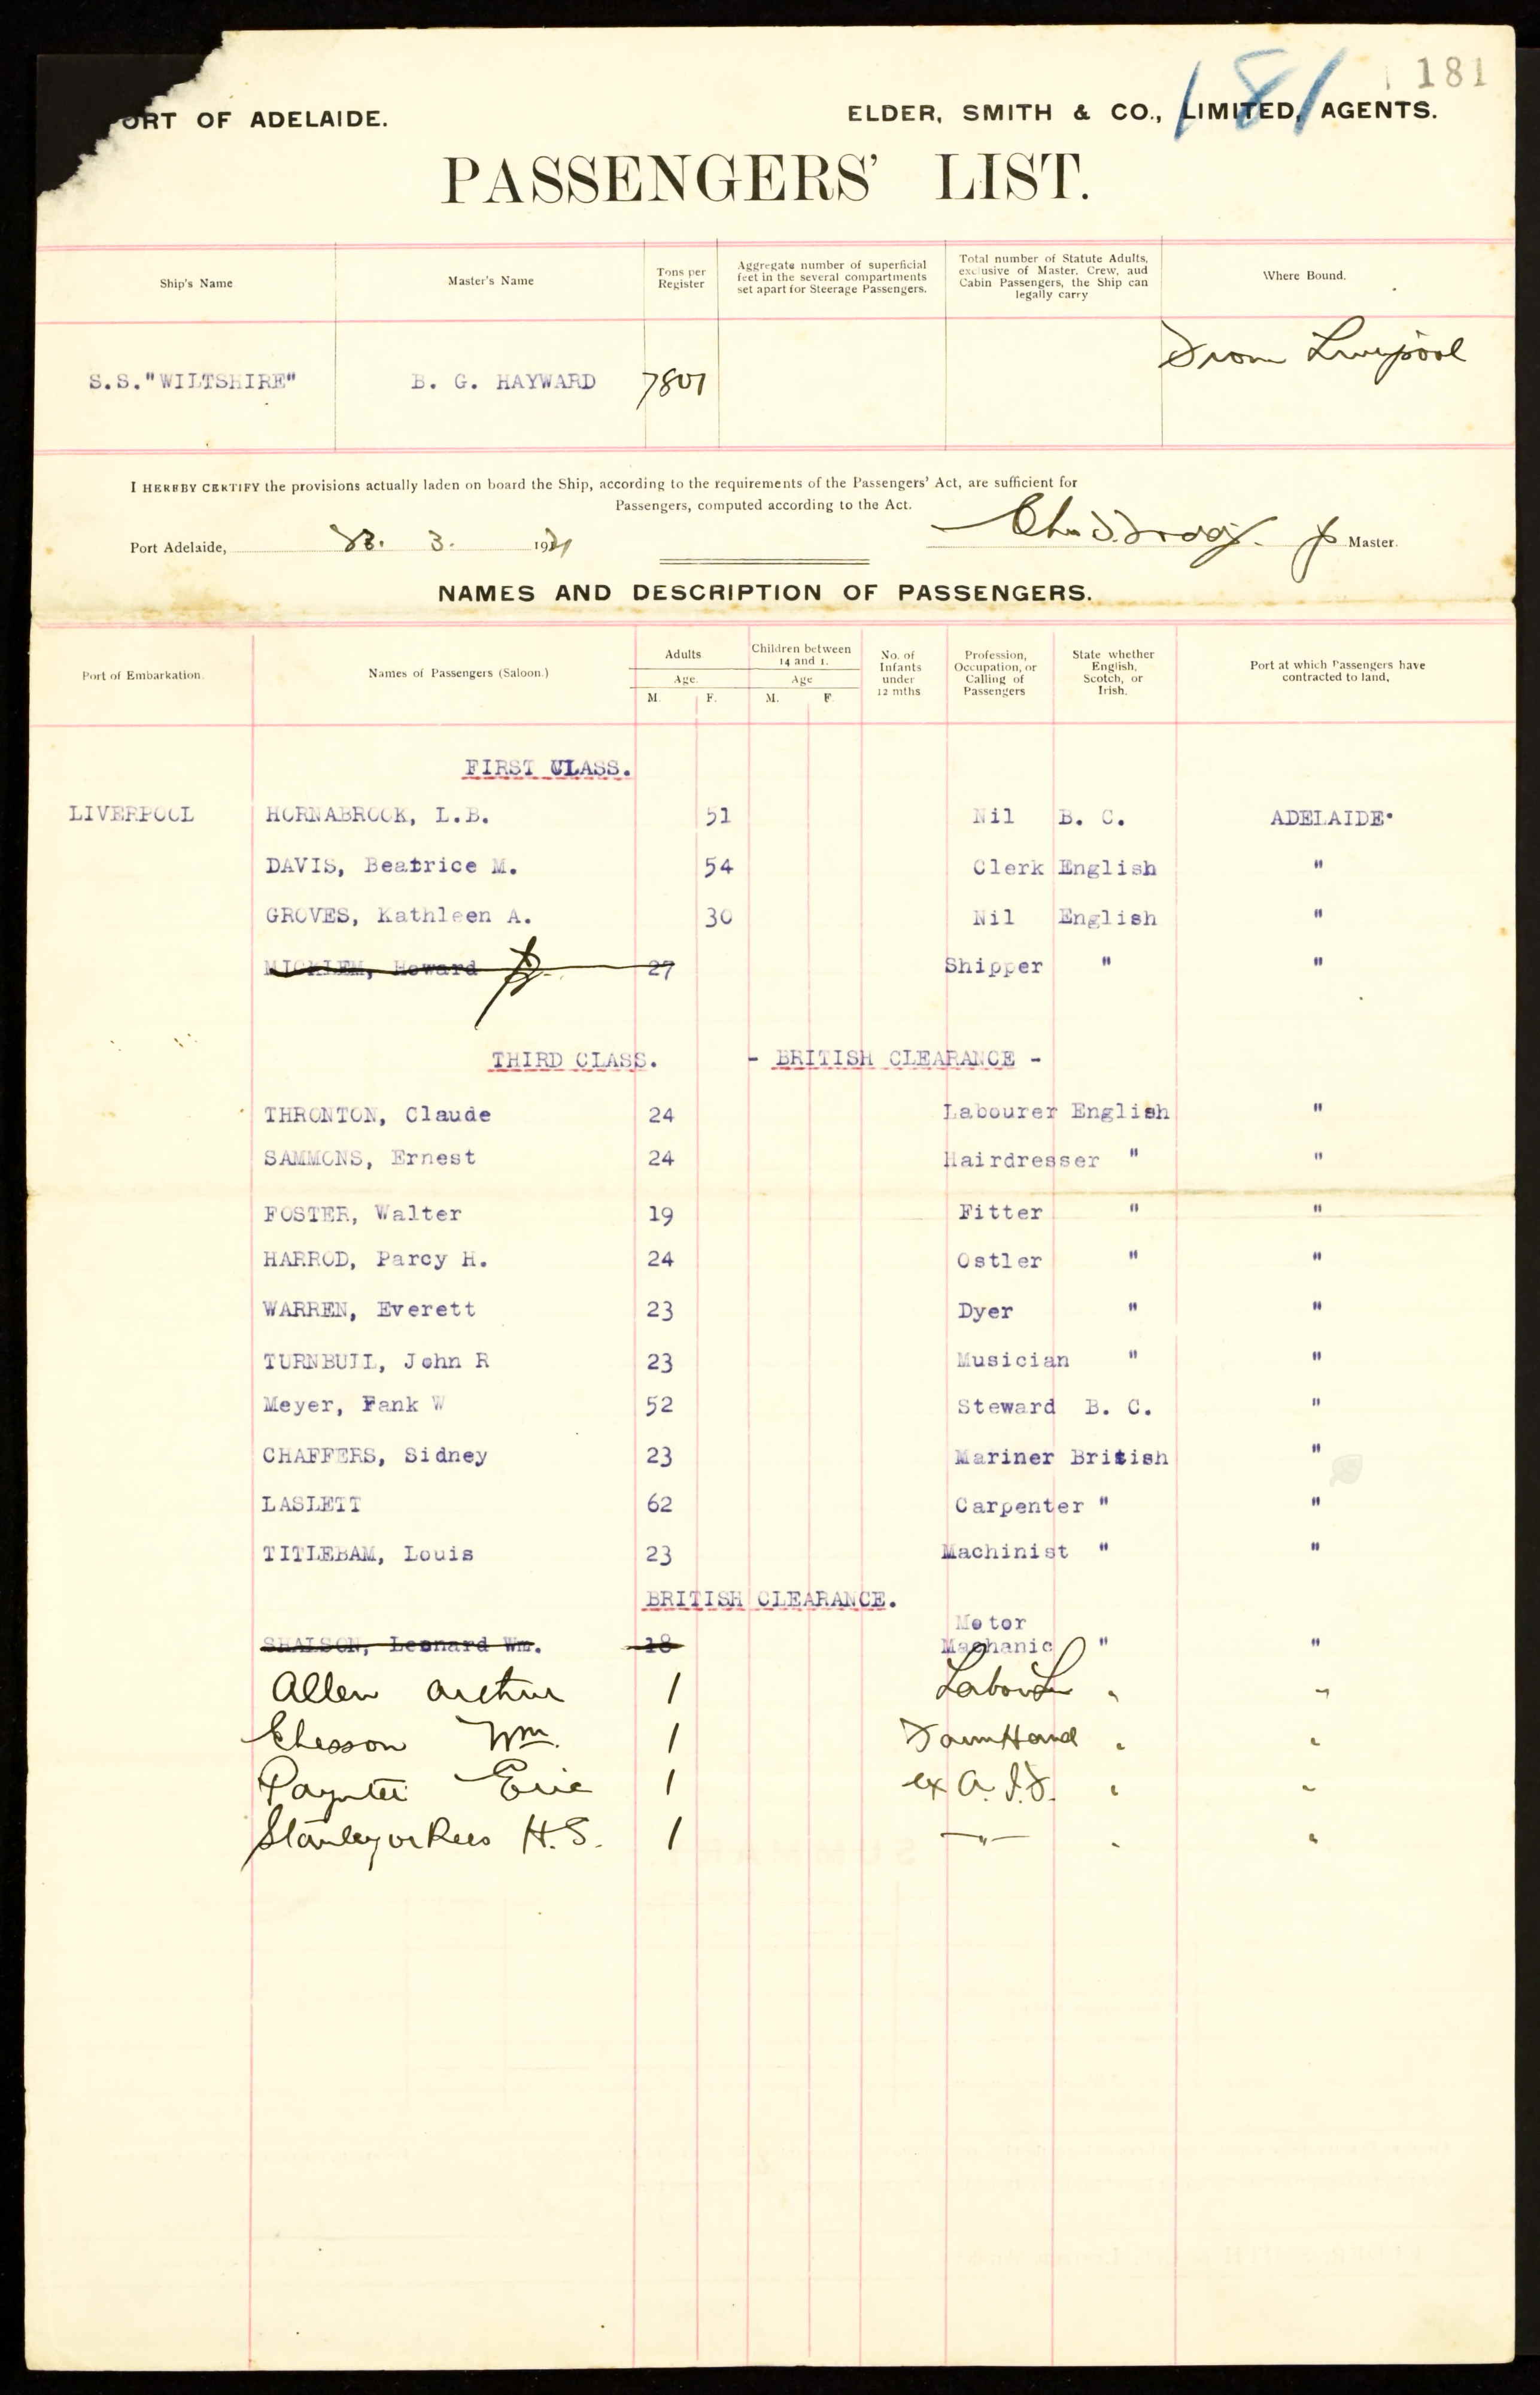 181
181
ORT OF ADELAIDE. ELDER, SMITH & CO., LIMITED, AGENTS.
PASSENGERS' LIST.
Ship's Name
Master's Name
Tons per Register
Aggregate number of superficial feet in the several compartments set apart for Steerage Passengers.
Total number of Statute Adults, exclusive of Master, Crew, aud Cabin Passengers, the Ship can legally carry
Where Bound.
S.S."WILTSHIRE" B. G. HAYWARD 7801 From Liverpool
I HEREBY CERTIFY the provisions actually laden on board the Ship, according to the requirements of the Passengers' Act, are sufficient for
Passengers, computed according to the Act.
Port Adelaide, 3. 1921 Master.
NAMES AND DESCRIPTION OF PASSENGERS.
Port of Embarkation.
Names of Passengers (Saloon.)
Adults
Age.
M. F.
Children between 14 and 1.
Age
M. F.
No. of Infants under 12 mths
Profession, Occupation, or Calling of Passengers
State whether English, Scotch, or Irish.
Port at which Passengers have contracted to land,
FIRST CLASS.
LIVERPOOL HORNABROOK, L.B. 51 Nil B. C. ADELAIDE.
DAVIS, Beatrice M. 54 Clerk English "
GROVES, Kathleen A. 30 Nil English "
MICKLEM, Howard 27 Shipper " "
THIRD CLASS. - BRITISH CLEARANCE -
THRONTON, Claude 24 Labourer English "
SAMMONS, Ernest 24 Hairdresser " "
FOSTER, Walter 19 Fitter " "
HARROD, Parcy H. 24 Ostler " "
WARREN, Everett 23 Dyer " "
TURNBULL, John R 23 Musician " "
Meyer, Fank W 52 Steward B. C. "
CHAFFERS, Sidney 23 Mariner British "
LASLETT 62 Carpenter " "
TITLEBAM, Louis 23 Machinist " "
BRITISH CLEARANCE.
Motor
SHALSON, Leonard Wm. 18 Machanic " "
Allen Arthur 1 Labourer " "
Chesson Wm. 1 Farm Hand " "
Paynter Eric 1 ex A.I.F. " "
Stanley or Rees H.S. 1 " " "